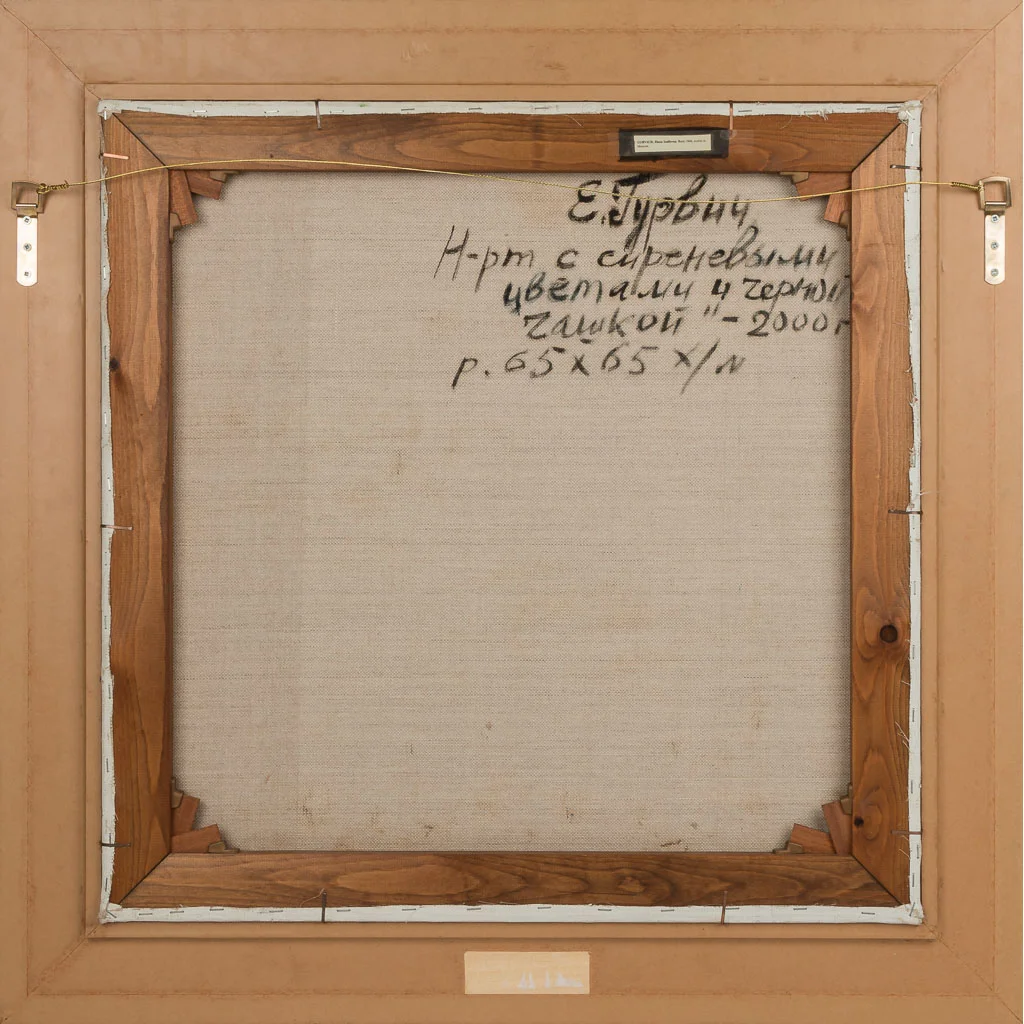 Е. Гурвич
Н-рт с сиреневыми
цветами и черной
чашкой" - 2000г
р. 65 х 65 х/м